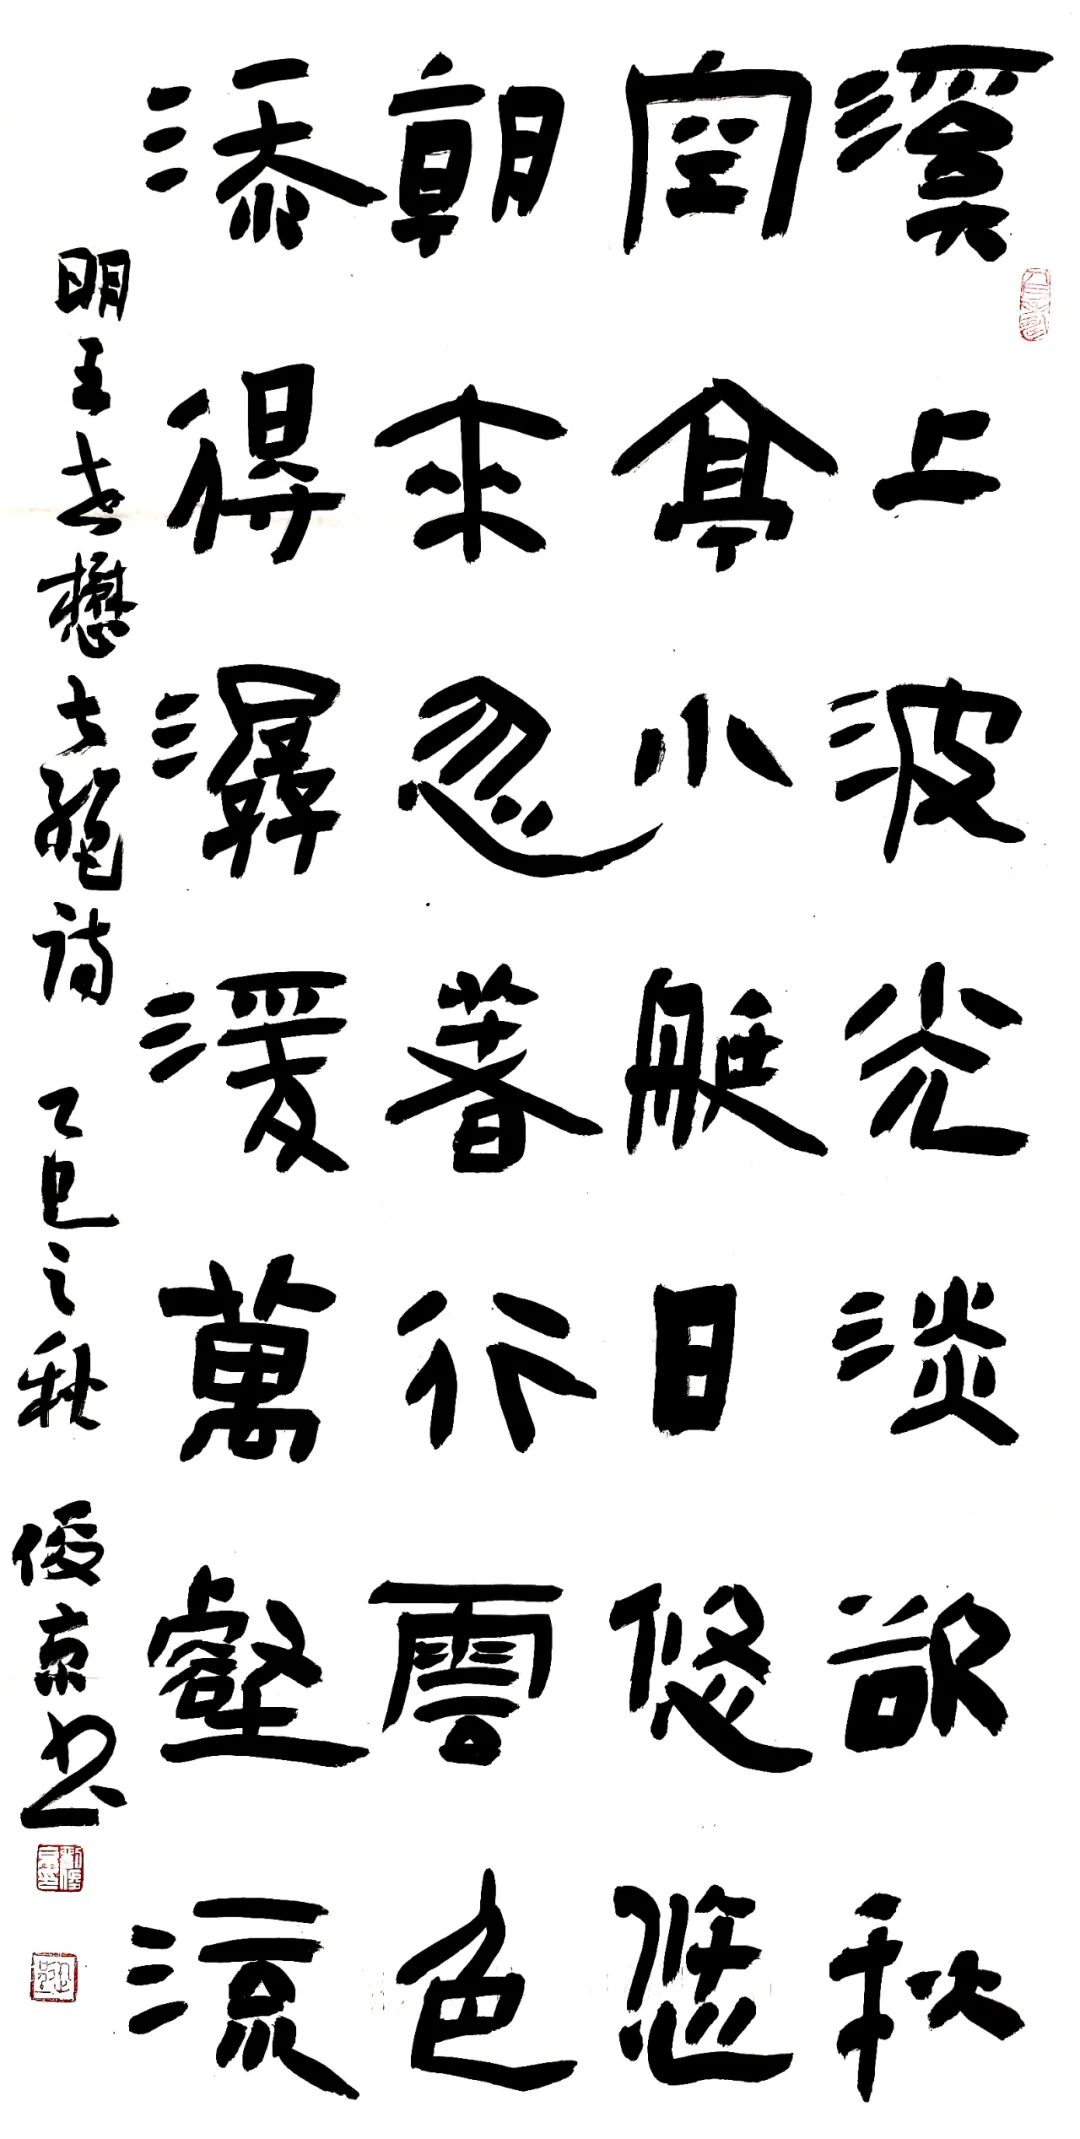 溪上波光淡欲秋
空亭小艇日悠悠
朝來忽著行雲色
添得潺湲萬壑流
明王世懋七絕詩 乙巳之秋 俊京书